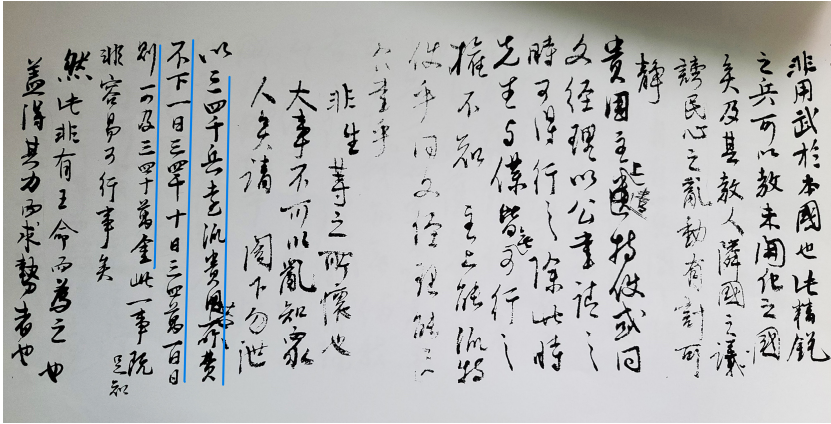 非用武於本國也此精銳
之兵可以教未開化之國
矣及其教人隣國之議
謗民心之亂動有割可
靜
貴國主上遣特使或同
文經理以公書請之
時可得行之除此時
先生与僕皆無可行之
權不知 主上能派特
使乎同文經理能
書乎
非生等之所懷也
大事不可以亂知衆
人矣請 閣下勿泄
以三四千兵走派貴國其所費
不下一日三四千十日三四萬百日
則可及三四十萬金此一事既足知
非容易可行事矣
然此非有王命而為之也
蓋得其力而求勢者也